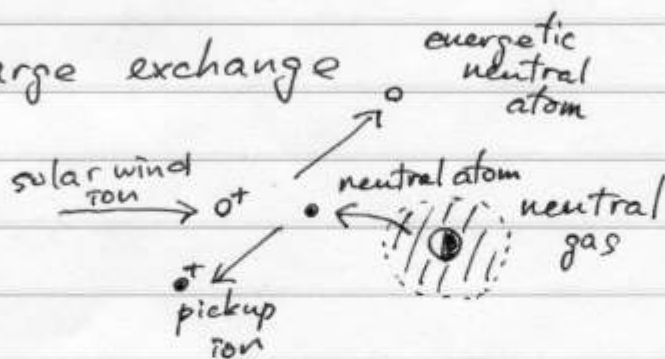 arge exchange
energetic
neutral
atom
solar wind
ion
o+
neutral atom
neutral
gas
+
pickup
ion